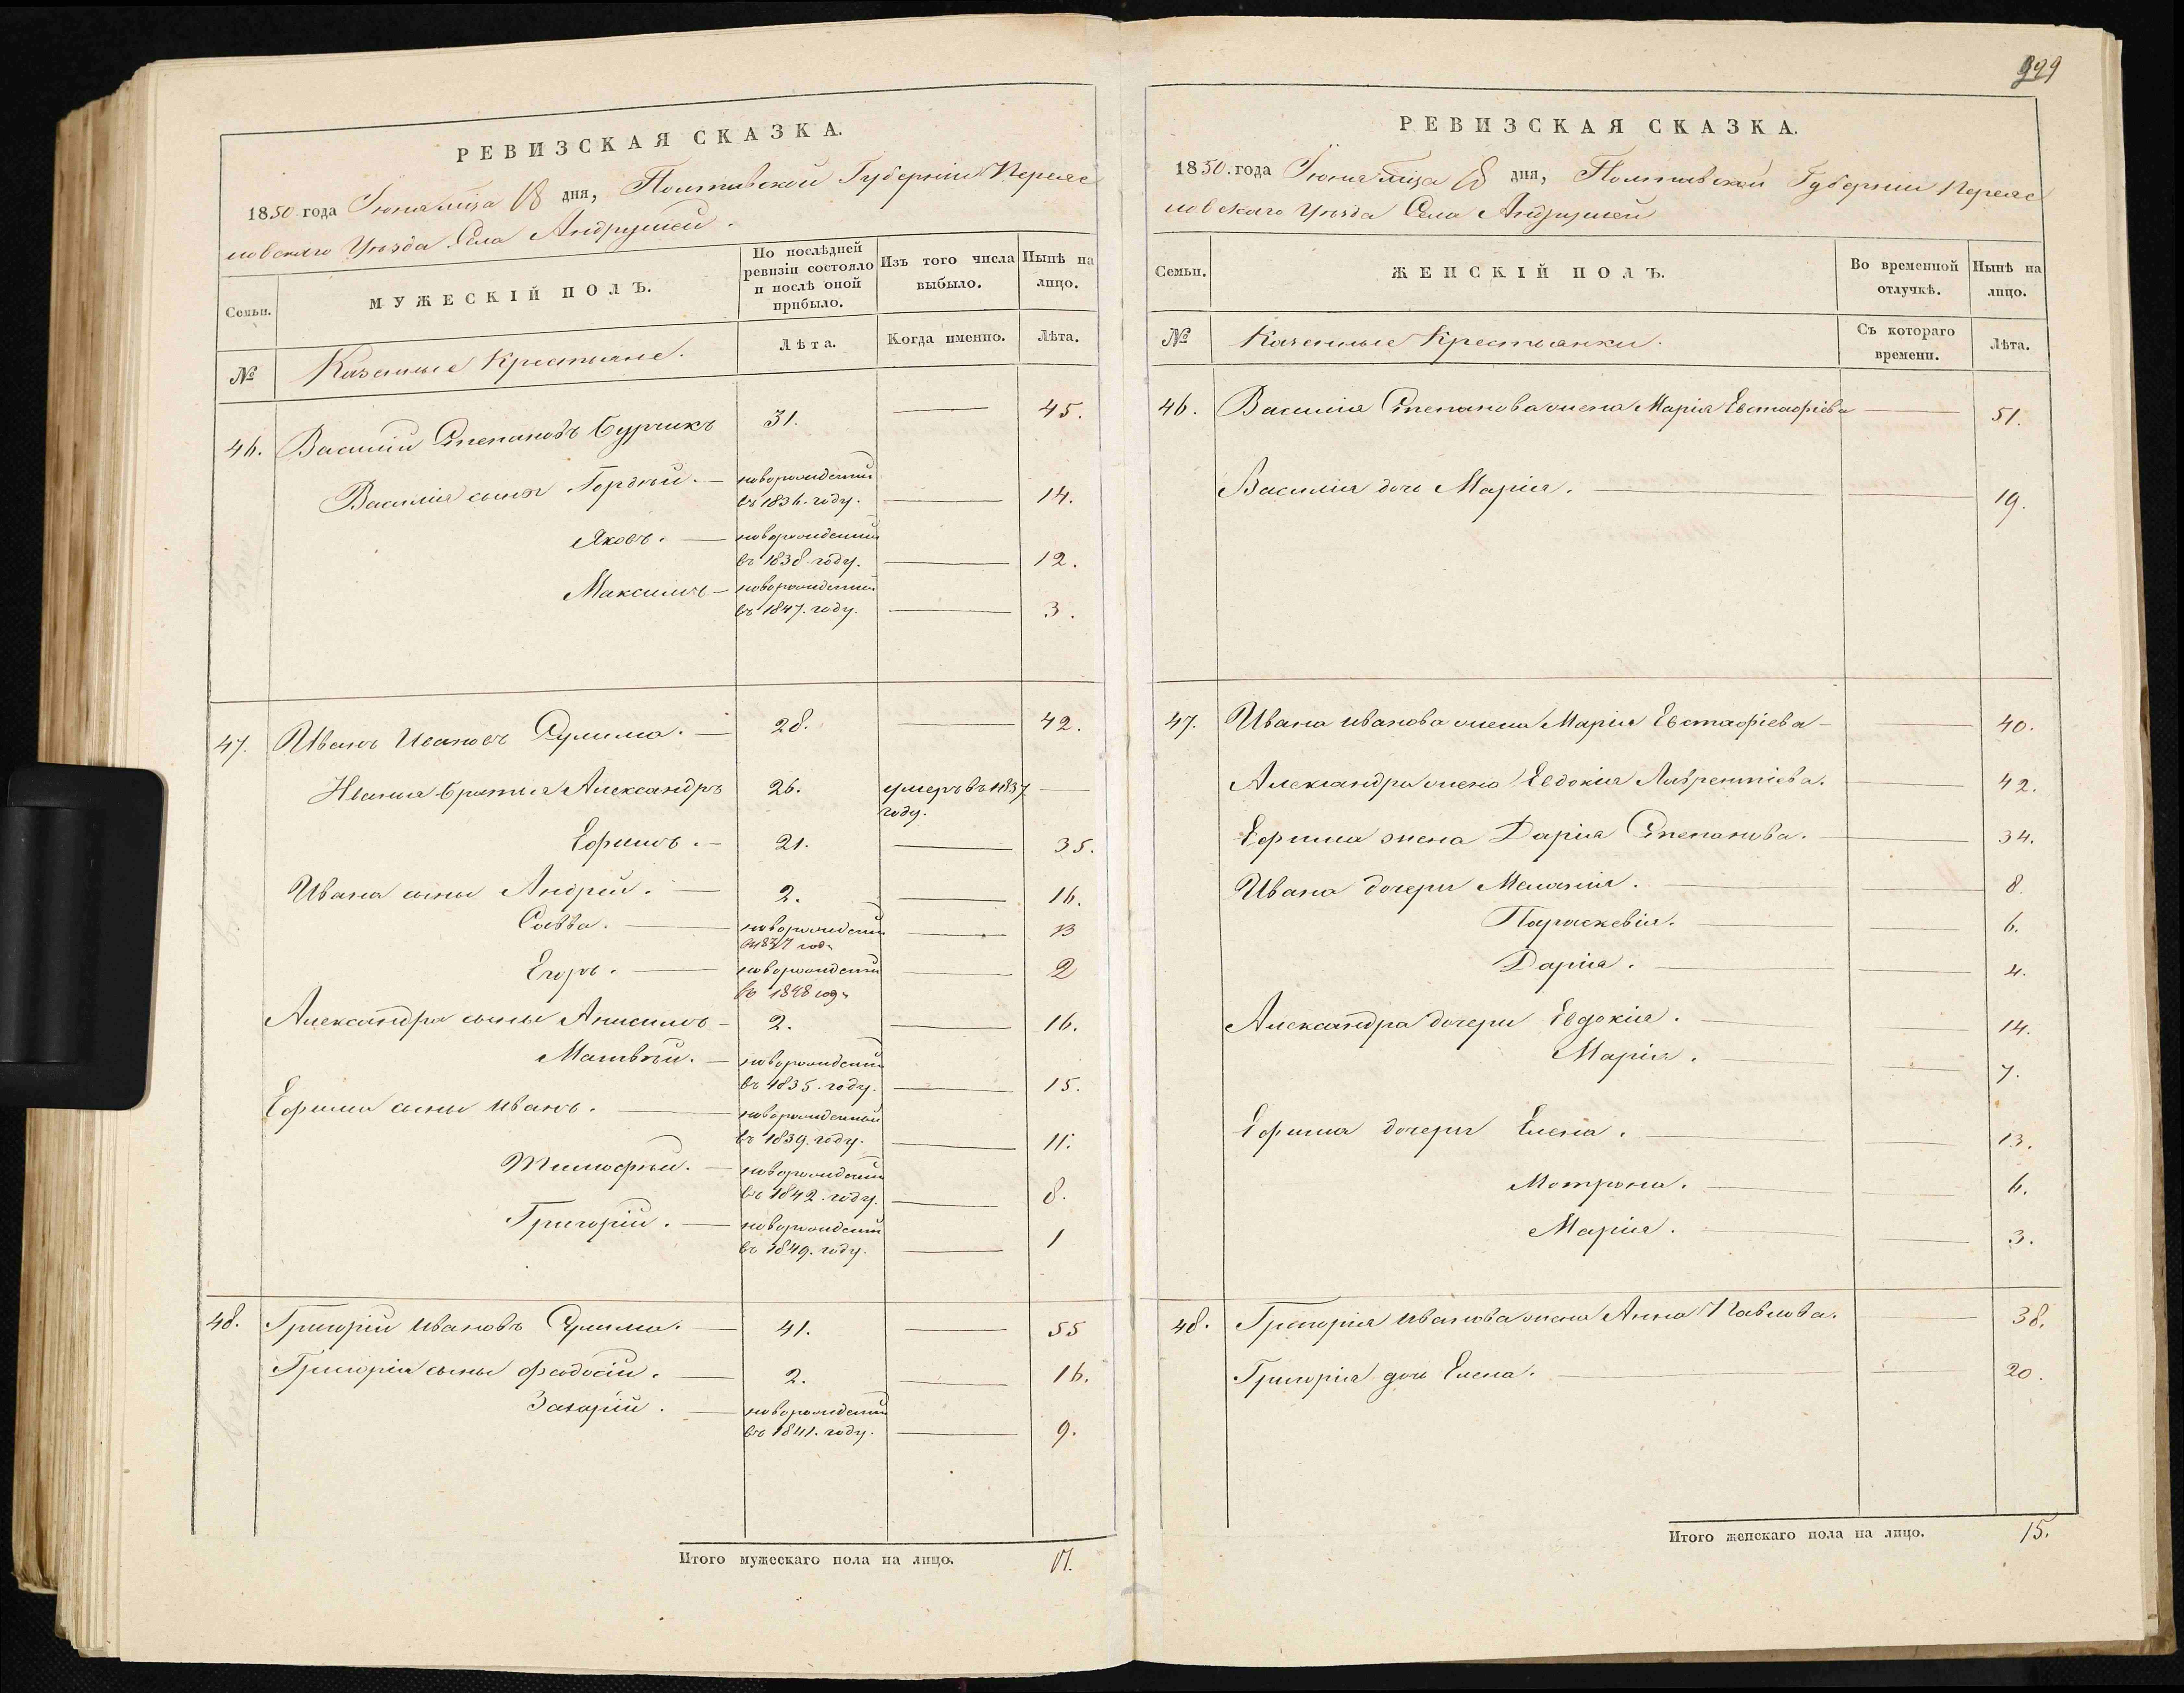 999
РЕВИЗСКАЯ СКАЗКА.
1850 года Іюня мца 18 дня, Полтавской Губерніи Переяс
ловскаго Уѣзда Села Андрушей.
Семьи.
МУЖЕСКІЙ ПОЛЪ.
По послѣдней ревизіи состояло и послѣ оной прибыло.
Изъ того числа выбыло.
Нынѣ на лицо.
№
Казенные Крестьяне.
Лѣта.
Когда именно.
Лѣта.
46. Василій Степановъ Бурчикъ 31. — 45.
Василія сыны Гордѣй. — новорожденный
въ 1836. году. — 14.
Яковъ. — новорожденный
въ 1838 году. — 12.
Максимъ — новорожденный
въ 1847. году. — 3.
47. Иванъ Ивановъ Сулима. — 28. — 42.
Ивана братья Александръ 26. умеръ въ 1837 —
году.
Ефимъ. — 21. — 35.
Ивана сыны Андрей. — 2. — 16.
Савва. — новорожденный — 13
въ 1837 годе
Егоръ. — новорожденный — 2
въ 1848 годе
Александра сыны Анисимъ — 2. — 16.
Матвѣй. — новорожденный
въ 1835. году. — 15.
Ефима сыны Иванъ. — новорожденный
въ 1839. году. — 11.
Тимофѣй. — новорожденный
въ 1842. году. — 8.
Григорій. — новорожденный
въ 1849. году. — 1
48. Григорій Ивановъ Сулима. — 41. — 55
Григорія сыны Феодосій. — 2. — 16.
Захарій. — новорожденный
въ 1841. году. — 9.
Итого мужескаго пола на лицо. 17.
РЕВИЗСКАЯ СКАЗКА.
1850. года Іюня мца 18 дня, Полтавской Губерніи Переяс
ловскаго Уѣзда Села Андрушей
Семьи.
ЖЕНСКІЙ ПОЛЪ.
Во временной отлучкѣ.
Нынѣ на лицо.
№
Казенные Крестьянки.
Съ котораго времени.
Лѣта.
46. Василія Степанова жена Марія Евстафіева — 51.
Василія дочь Марія. — 19.
47. Ивана Иванова жена Марія Евстафіева — 40.
Александра жена Евдокія Лаврентіева. — 42.
Ефима жена Дарія Степанова. — 34.
Ивана дочери Меланія. — 8.
Параскевія. — 6.
Дарія. — 4.
Александра дочери Евдокія. — 14.
Марія. — 7.
Ефима дочери Елена. — 13.
Мотрона. — 6.
Марія. — 3.
48. Григорія Иванова жена Анна Павлова. — 38.
Григорія дочь Елена. — 20.
Итого женскаго пола на лицо. 15.